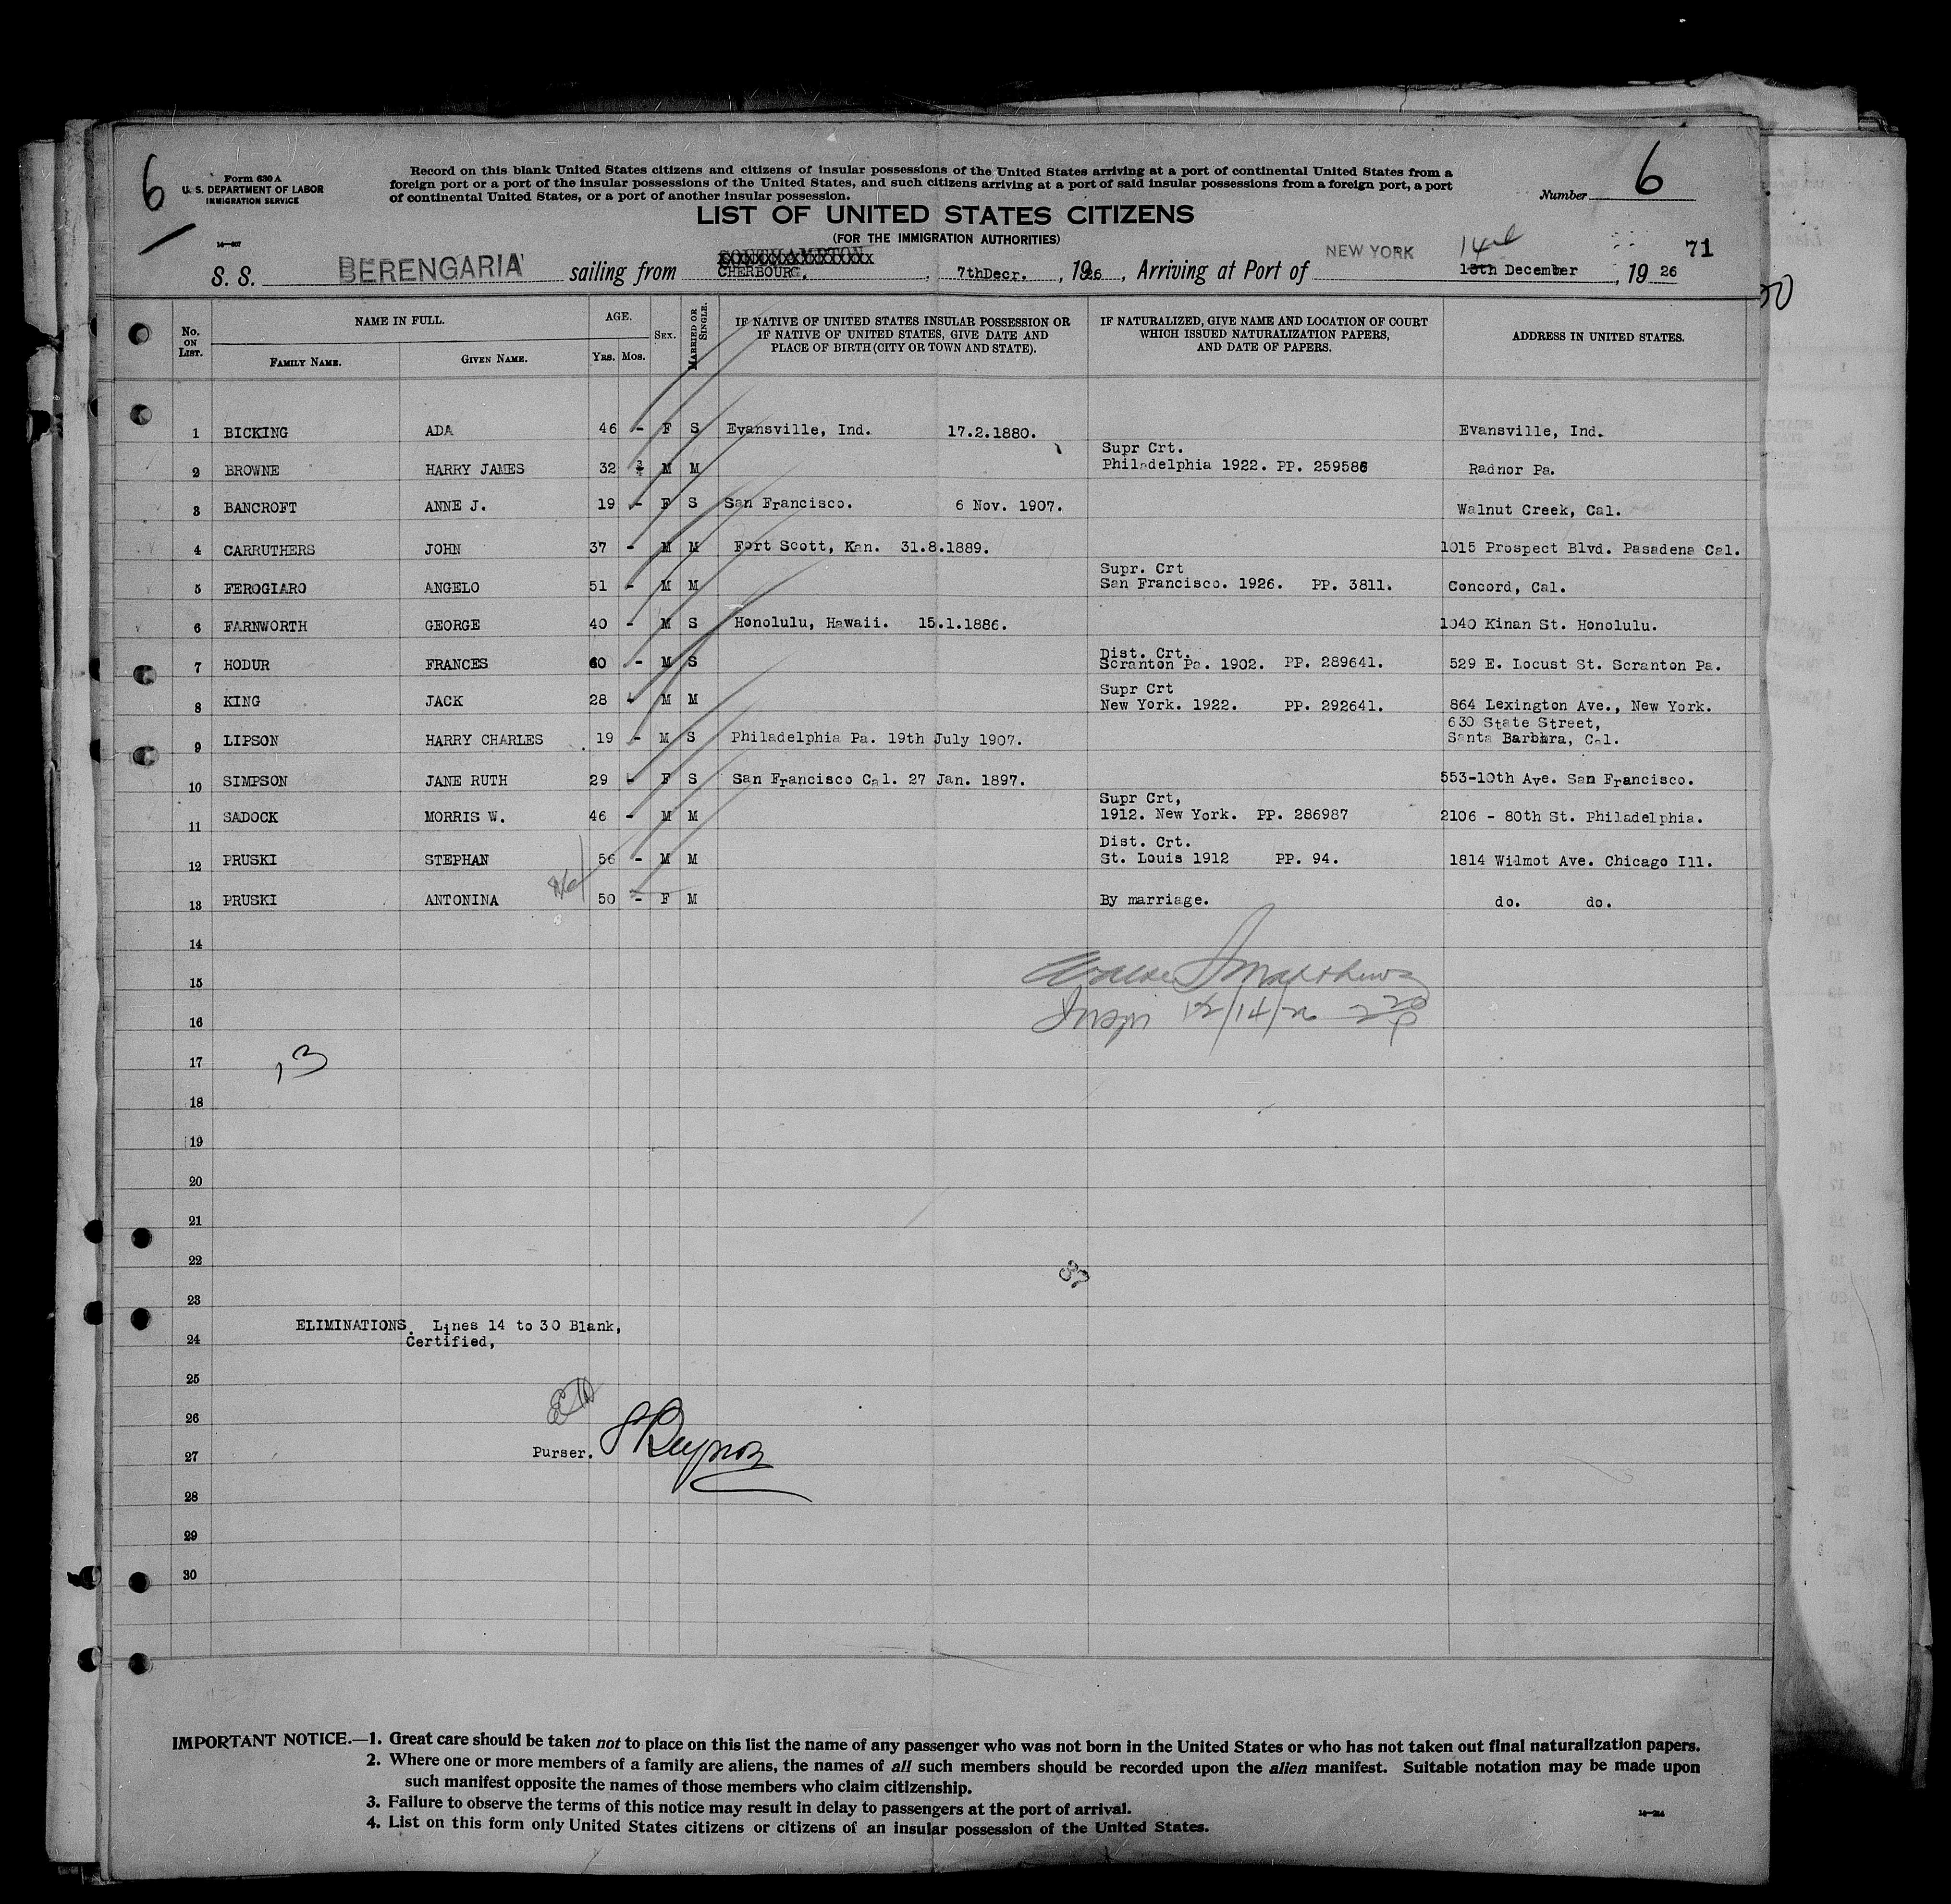 6
Form 630 A
U. S. DEPARTMENT OF LABOR
IMMIGRATION SERVICE
Record on this blank United States citizens and citizens of insular possessions of the United States arriving at a port of continental United States from a
foreign port or a port of the insular possessions of the United States, and such citizens arriving at a port of said insular possessions from a foreign port, a port
of continental United States, or a port of another insular possession.
Number 6
LIST OF UNITED STATES CITIZENS
(FOR THE IMMIGRATION AUTHORITIES)
71
S. S. BERENGARIA sailing from SOUTHAMPTON CHERBOURG. , 7thDecr. , 1926 , Arriving at Port of NEW YORK 13th December , 19 26
No. ON LIST. NAME IN FULL. AGE. SEX. MARRIED OR SINGLE. IF NATIVE OF UNITED STATES INSULAR POSSESSION OR IF NATIVE OF UNITED STATES, GIVE DATE AND PLACE OF BIRTH (CITY OR TOWN AND STATE). IF NATURALIZED, GIVE NAME AND LOCATION OF COURT WHICH ISSUED NATURALIZATION PAPERS, AND DATE OF PAPERS. ADDRESS IN UNITED STATES.
FAMILY NAME. GIVEN NAME. YRS. MOS.
1 BICKING ADA 46 - F S Evansville, Ind. 17.2.1880. Evansville, Ind.
Supr Crt.
2 BROWNE HARRY JAMES 32 M M Philadelphia 1922. PP. 259586 Radnor Pa.
3 BANCROFT ANNE J. 19 - F S San Francisco. 6 Nov. 1907. Walnut Creek, Cal.
4 CARRUTHERS JOHN 37 - M M Fort Scott, Kan. 31.8.1889. 1015 Prospect Blvd. Pasadena Cal.
Supr. Crt
5 FEROGIARO ANGELO 51 - M M San Francisco. 1926. PP. 3811. Concord, Cal.
6 FARNWORTH GEORGE 40 - M S Honolulu, Hawaii. 15.1.1886. 1040 Kinan St. Honolulu.
Dist. Crt.
7 HODUR FRANCES 60 - M S Scranton Pa. 1902. PP. 289641. 529 E. Locust St. Scranton Pa.
Supr Crt
8 KING JACK 28 - M M New York. 1922. PP. 292641. 864 Lexington Ave., New York.
630 State Street,
9 LIPSON HARRY CHARLES 19 - M S Philadelphia Pa. 19th July 1907. Santa Barbara, Cal.
10 SIMPSON JANE RUTH 29 - F S San Francisco Cal. 27 Jan. 1897. 553-10th Ave. San Francisco.
Supr Crt,
11 SADOCK MORRIS W. 46 - M M 1912. New York. PP. 286987 2106 - 80th St. Philadelphia.
Dist. Crt.
12 PRUSKI STEPHAN 56 - M M St. Louis 1912 PP. 94. 1814 Wilmot Ave. Chicago Ill.
13 PRUSKI ANTONINA 50 - F M By marriage. do. do.
14
15 Matthews
16 Insp 12/14/26
17 13
18
19
20
21
22
37
23
ELIMINATIONS. Lines 14 to 30 Blank,
24 Certified,
25
26
27 Purser.
28
29
30
IMPORTANT NOTICE.—1. Great care should be taken not to place on this list the name of any passenger who was not born in the United States or who has not taken out final naturalization papers.
2. Where one or more members of a family are aliens, the names of all such members should be recorded upon the alien manifest. Suitable notation may be made upon
such manifest opposite the names of those members who claim citizenship.
3. Failure to observe the terms of this notice may result in delay to passengers at the port of arrival.
4. List on this form only United States citizens or citizens of an insular possession of the United States.